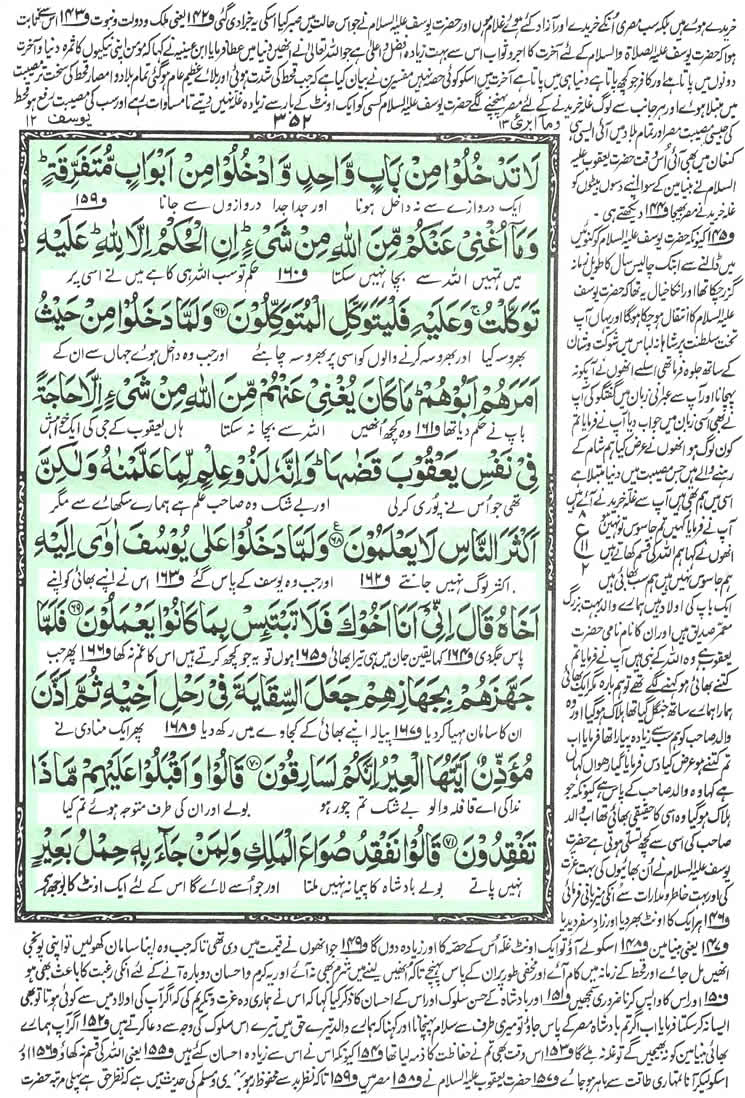 خریدے ہوئے ہیں بلکہ سب مصری اُنکے خریدے اور آزاد کئے ہوئے غلام ہوں اور حضرت یوسف علیہ السلام نے جو اس حالت میں صبر کیا اسکی یہ جزا دی گئی و۱۴۲ یعنی ملک و دولت و نبوت و۱۴۳ اس سے ثابت
ہوا کہ حضرت یوسف علیہ الصلاۃ والسلام کے لئے آخرت کا اجر و ثواب اس سے بہت زیادہ افضل و اعلیٰ ہے جو اللہ تعالیٰ نے انھیں دنیا میں عطا فرمایا ابن عیینہ نے کہا کہ مومن اپنی نیکیوں کا ثمرہ دنیا و آخرت
دونوں میں پاتا ہے اور کافر جو کچھ پاتا ہے دنیا ہی میں پاتا ہے آخرت میں اسکو کوئی حصہ نہیں مفسرین نے بیان کیا ہے کہ جب قحط کی شدت ہوئی اور بلائے عظیم عام ہو گئی تمام بلاد و امصار قحط کی سخت تر مصیبت
میں مبتلا ہوئے اور ہر جانب سے لوگ غلہ خریدنے کے لئے مصر پہنچنے لگے حضرت یوسف علیہ السلام کسی کو ایک اونٹ کے بار سے زیادہ غلہ نہیں دیتے تا مساوات رہے اور سب کی مصیبت رفع ہو قحط
وما ابرئ ۱۳
۳۵۲
یوسف ۱۲
لَا تَدْخُلُوْا مِنْۢ بَابٍ وَّاحِدٍ وَّادْخُلُوْا مِنْ اَبْوَابٍ مُّتَفَرِّقَةٍ ؕ
ایک دروازے سے نہ داخل ہونا اور جدا جدا دروازوں سے جانا و۱۵۹
وَمَاۤ اُغْنِیْ عَنْكُمْ مِّنَ اللّٰهِ مِنْ شَیْءٍ ؕ اِنِ الْحُكْمُ اِلَّا لِلّٰهِ ؕ عَلَیْهِ
میں تمہیں اللہ سے بچا نہیں سکتا و۱۶۰ حکم تو سب اللہ ہی کا ہے میں نے اسی پر
تَوَكَّلْتُ ۚ وَعَلَیْهِ فَلْیَتَوَكَّلِ الْمُتَوَكِّلُوْنَ ﴿۶۷﴾ وَلَمَّا دَخَلُوْا مِنْ حَیْثُ
بھروسہ کیا اور بھروسہ کرنے والوں کو اسی پر بھروسہ چاہئے اور جب وہ داخل ہوئے جہاں سے ان کے
اَمَرَهُمْ اَبُوْهُمْ ؕ مَا كَانَ یُغْنِیْ عَنْهُمْ مِّنَ اللّٰهِ مِنْ شَیْءٍ اِلَّا حَاجَةً
باپ نے حکم دیا تھا و۱۶۱ وہ کچھ انھیں اللہ سے بچا نہ سکتا ہاں یعقوب کے جی کی ایک خواہش
فِیْ نَفْسِ یَعْقُوْبَ قَضٰىهَا ؕ وَاِنَّهٗ لَذُوْ عِلْمٍ لِّمَا عَلَّمْنٰهُ وَلٰكِنَّ
تھی جو اُس نے پوری کر لی اور بے شک وہ صاحب علم ہے ہمارے سکھائے سے مگر
اَكْثَرَ النَّاسِ لَا یَعْلَمُوْنَ ﴿۶۸﴾ وَلَمَّا دَخَلُوْا عَلٰی یُوْسُفَ اٰوٰۤی اِلَیْهِ
اکثر لوگ نہیں جانتے و۱۶۲ اور جب وہ یوسف کے پاس گئے و۱۶۳ اس نے اپنے بھائی کو اپنے
اَخَاهُ قَالَ اِنِّیْۤ اَنَا اَخُوْكَ فَلَا تَبْتَئِسْ بِمَا كَانُوْا یَعْمَلُوْنَ ﴿۶۹﴾ فَلَمَّا
پاس جگہ دی و۱۶۴ کہا یقین جان میں ہی تیرا بھائی و۱۶۵ ہوں تو یہ جو کچھ کرتے ہیں اس کا غم نہ کھا و۱۶۶ پھر جب
جَهَّزَهُمْ بِجَهَازِهِمْ جَعَلَ السِّقَایَةَ فِیْ رَحْلِ اَخِیْهِ ثُمَّ اَذَّنَ
ان کا سامان مہیا کر دیا و۱۶۷ پیالہ اپنے بھائی کے کجاوے میں رکھ دیا و۱۶۸ پھر ایک منادی نے
مُؤَذِّنٌ اَیَّتُهَا الْعِیْرُ اِنَّكُمْ لَسٰرِقُوْنَ ﴿۷۰﴾ قَالُوْا وَاَقْبَلُوْا عَلَیْهِمْ مَّا ذَا
ندا کی اے قافلہ والو بے شک تم چور ہو بولے اور ان کی طرف متوجہ ہوئے تم کیا
تَفْقِدُوْنَ ﴿۷۱﴾ قَالُوْا نَفْقِدُ صُوَاعَ الْمَلِكِ وَلِمَنْ جَآءَ بِهٖ حِمْلُ بَعِیْرٍ
نہیں پاتے بولے بادشاہ کا پیمانہ نہیں ملتا اور جو اُسے لائے گا اس کے لئے ایک اونٹ کا بوجھ ہے
کی جیسی مصیبت مصر اور تمام بلاد میں آئی ایسی ہی
کنعان میں بھی آئی اُس وقت حضرت یعقوب علیہ
السلام نے بنیامین کے سوا اپنے دسوں بیٹوں کو
غلہ خریدنے مصر بھیجا و۱۴۴ دیکھتے ہی۔
و۱۴۵ کیونکہ حضرت یوسف علیہ السلام کو کنوئیں
میں ڈالنے سے ابتک چالیس سال کا طویل زمانہ
گزر چکا تھا اور انکا خیال یہ تھا کہ حضرت یوسف
علیہ السلام کا انتقال ہو چکا ہو گا اور یہاں آپ
تخت سلطنت پر شاہانہ لباس میں شوکت و شان
کے ساتھ جلوہ فرما تھے اسلئے انھوں نے آپکو نہ
پہچانا اور آپ سے عبرانی زبان میں گفتگو کی آپ
نے بھی اُسی زبان میں جواب دیا آپ نے فرمایا تم
کون لوگ ہو انھوں نے عرض کیا ہم شام کے
رہنے والے ہیں جس مصیبت میں دنیا مبتلا ہے
اسی میں ہم بھی ہیں آپ سے غلہ خریدنے آئے ہیں
آپ نے فرمایا کہیں تم جاسوس تو نہیں
انھوں نے کہا ہم اللہ کی قسم کھاتے ہیں
ہم جاسوس نہیں ہیں ہم سب بھائی ہیں
ایک باپ کی اولاد ہیں ہمارے والد بہت بزرگ
معمر صدیق ہیں اور ان کا نام نامی حضرت
یعقوب ہے وہ اللہ کے نبی ہیں آپ نے فرمایا تم
کتنے بھائی ہو کہنے لگے تھے تو ہم بارہ مگر ایک بھائی
ہمارا ہمارے ساتھ جنگل گیا تھا ہلاک ہو گیا اور وہ
والد صاحب کو ہم سب سے زیادہ پیارا تھا فرمایا اب
تم کتنے ہو عرض کیا دس فرمایا گیارھواں کہاں
ہے کہا وہ والد صاحب کے پاس ہے کیونکہ جو
ہلاک ہو گیا وہ اسی کا حقیقی بھائی تھا اب والد
صاحب کی اسی سے کچھ تسلی ہوتی ہے حضرت
یوسف علیہ السلام نے ان بھائیوں کی بہت عزت
کی اور بہت خاطر و مدارات سے انکی میزبانی فرمائی
و۱۴۶ ہر ایک کا اونٹ بھر دیا اور زاد سفر دیدیا
ع
۸
۱۱
۲
و۱۴۷ یعنی بنیامین و۱۴۸ اسکو لے آؤ تو ایک اونٹ غلہ اُس کے حصہ کا اور زیادہ دوں گا و۱۴۹ جو انھوں نے قیمت میں دی تھی تاکہ جب وہ اپنا سامان کھولیں تو اپنی پونجی
انھیں مل جائے اور قحط کے زمانہ میں کام آئے اور مخفی طور پر ان کے پاس پہنچے تاکہ انھیں لینے میں شرم بھی نہ آئے اور یہ کرم و احسان دوبارہ آنے کے لئے انکی رغبت کا باعث بھی ہو
و۱۵۰ اور اس کا واپس کرنا ضروری سمجھیں و۱۵۱ اور بادشاہ کے حسن سلوک اور اس کے احسان کا ذکر کیا کہا کہ اس نے ہماری وہ عزت و تکریم کی کہ اگر آپ کی اولاد میں سے کوئی ہوتا تو بھی
ایسا نہ کر سکتا فرمایا اب اگر تم بادشاہ مصر کے پاس جاؤ تو میری طرف سے سلام پہنچانا اور کہنا کہ ہمارے والد تیرے حق میں تیرے اس سلوک کی وجہ سے دعا کرتے ہیں و۱۵۲ اگر آپ ہمارے
بھائی بنیامین کو بھیجیں گے تو غلہ ملے گا و۱۵۳ اس وقت بھی تم نے حفاظت کا ذمہ لیا تھا و۱۵۴ کیونکہ اس نے اس سے زیادہ احسان کئے ہیں و۱۵۵ یعنی اللہ کی قسم نہ کھاؤ و۱۵۶ اور
اسکو لیکر آنا تمہاری طاقت سے باہر ہو جائے و۱۵۷ حضرت یعقوب علیہ السلام نے و۱۵۸ مصر میں و۱۵۹ تاکہ نظر بد سے محفوظ رہو بخاری و مسلم کی حدیث میں ہے کہ نظر حق ہے پہلی مرتبہ حضرت